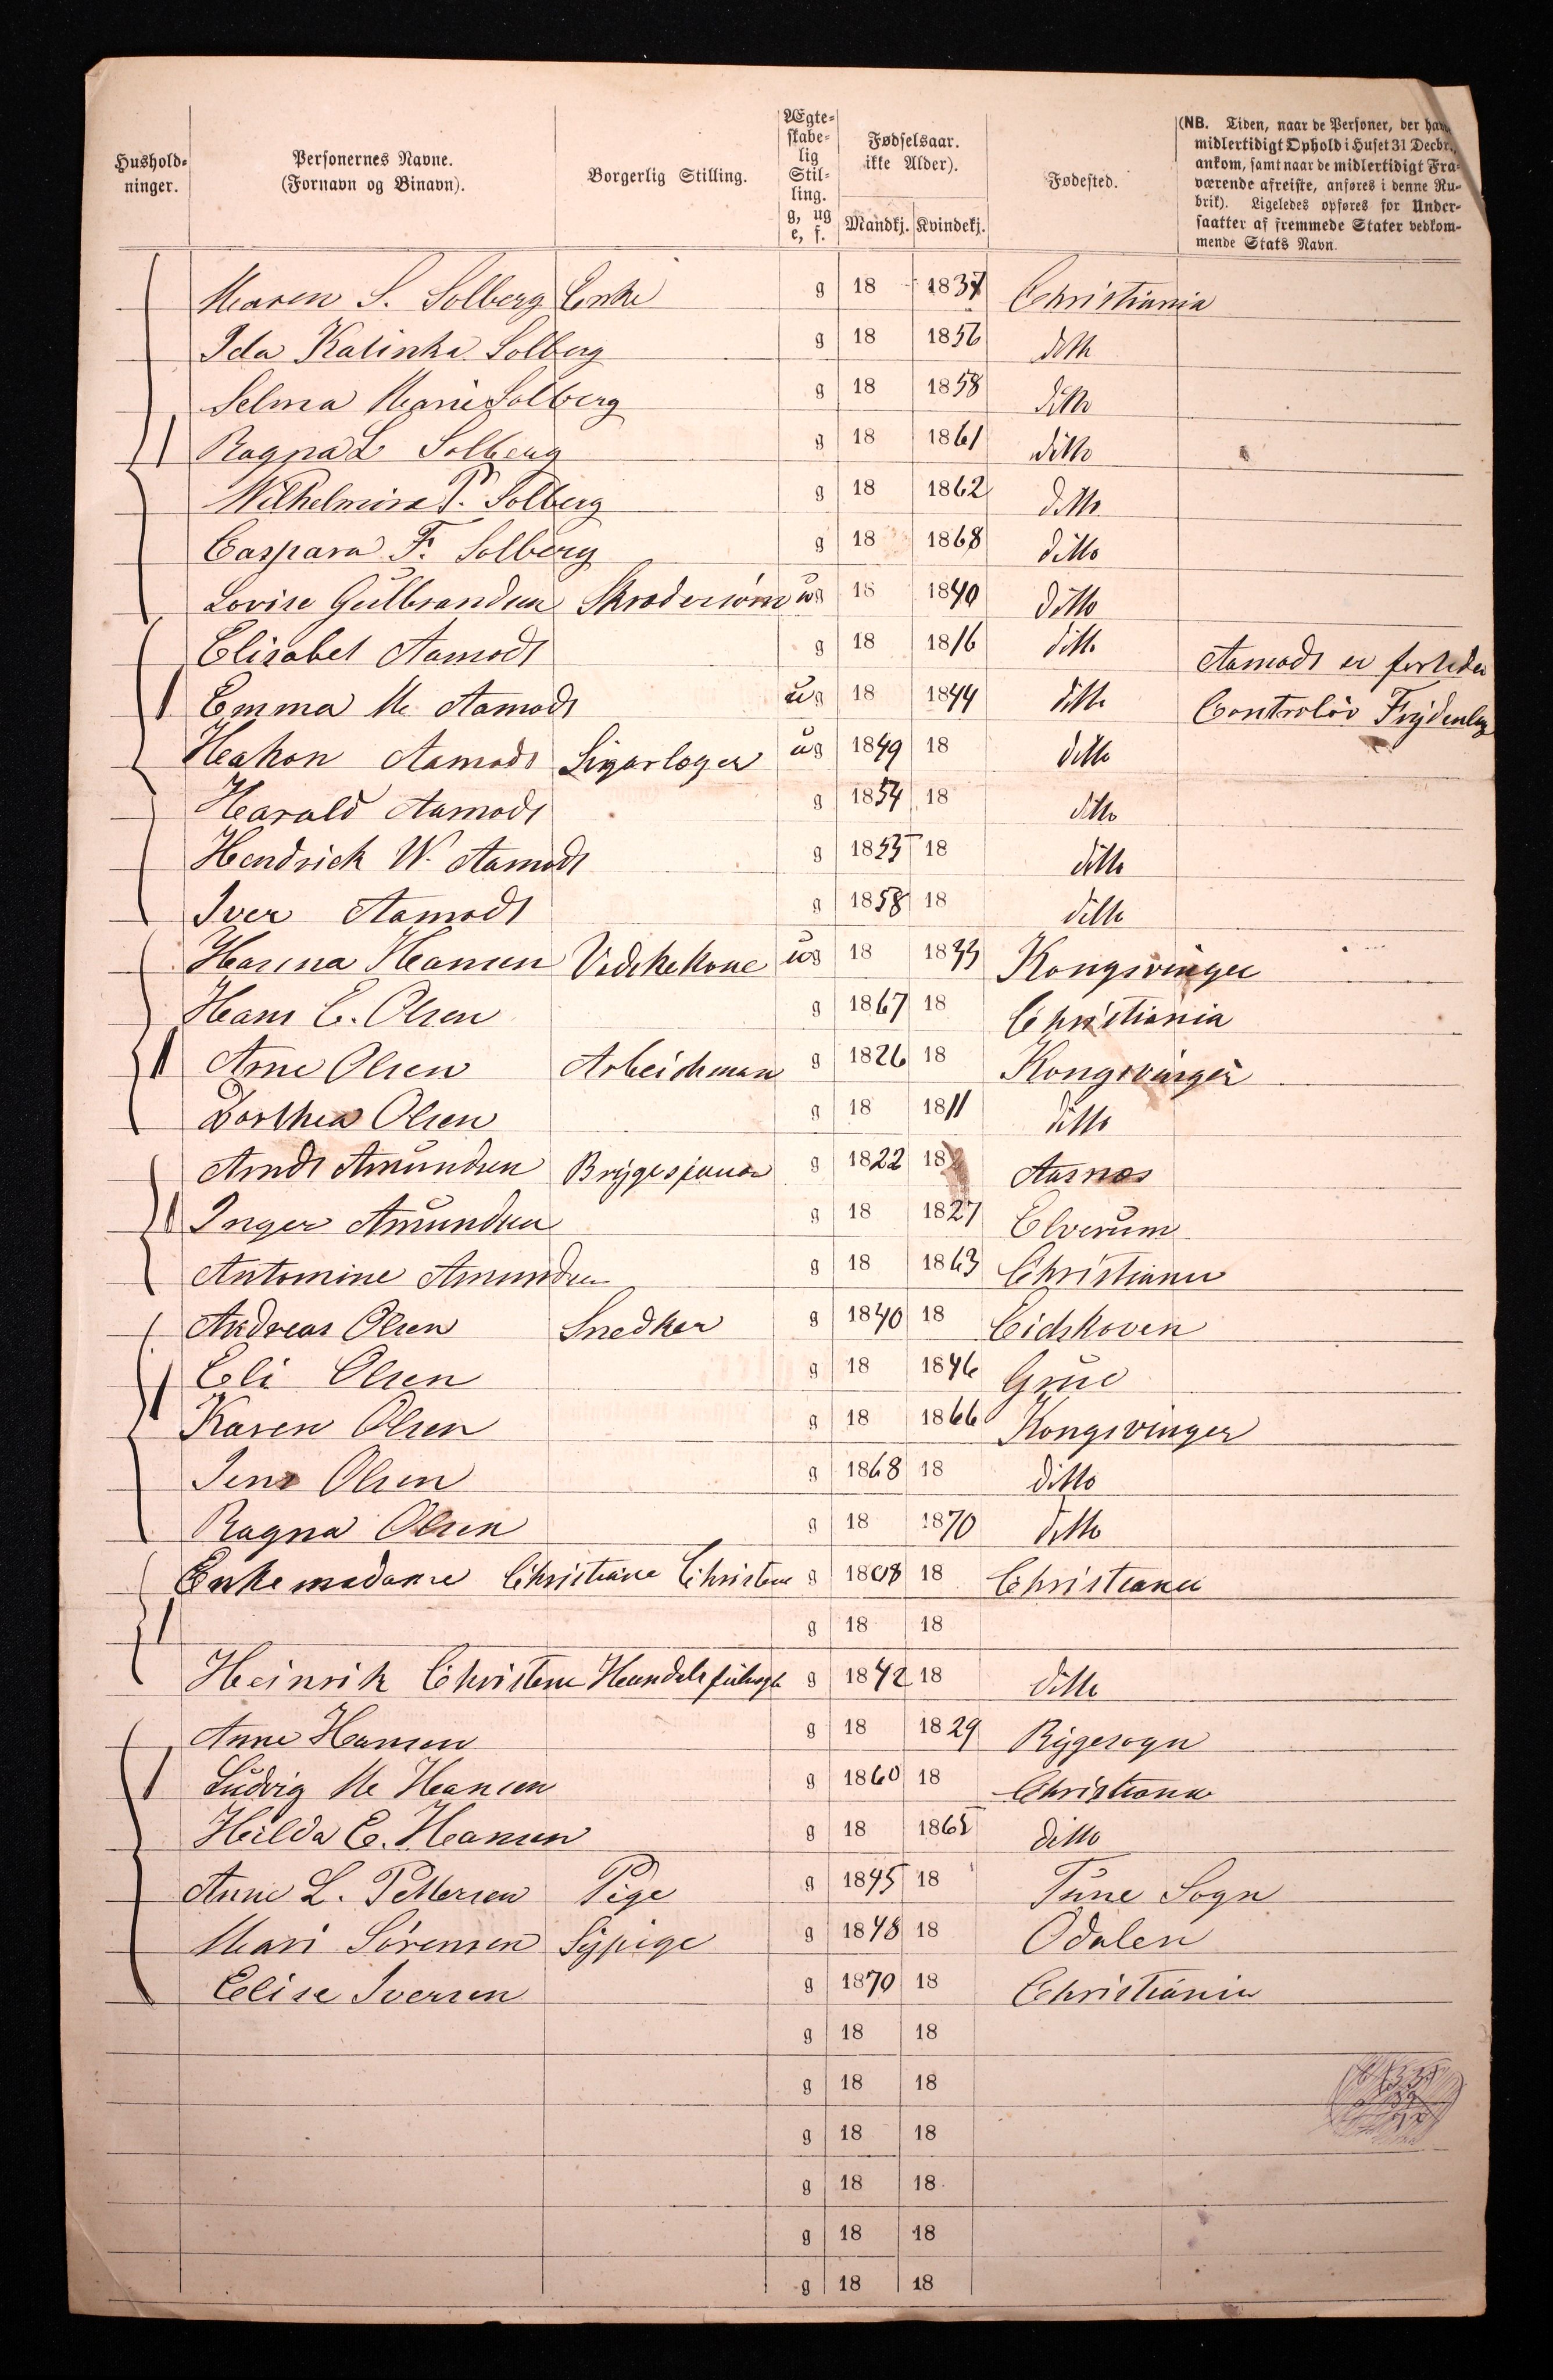 Hushold-
ninger.
Personernes Navne.
(Fornavn og Binavn).
Borgerlig Stilling.
Ægte-
skabe-
lig
Stil-
ling.
g, ug
e, f.
Fødselsaar.
ikke Alder).
Mandkj. Kvindekj.
Fødested.
(NB. Tiden, naar de Personer, der have
midlertidigt Ophold i Huset 31 Decbr.,
ankom, samt naar de midlertidigt Fra-
værende afreiste, anføres i denne Ru-
brik). Ligeledes opføres for Under-
saatter af fremmede Stater vedkom-
mende Stats Navn.
Maren S. Solberg Enke g 18 1837 Christiania
Ida Katinka Solberg g 18 1856 ditto
Selma Marie Solberg g 18 1858 ditto
Ragna L Solberg g 18 1861 ditto
Wilhelmine P. Solberg g 18 1862 ditto
Caspara F. Solberg g 18 1868 ditto
Lovise Gulbrandsen ug 18 1840 ditto
Elisabet Aamodt g 18 1816 ditto Aamodt er
Emma M Aamodt ug 18 1844 ditto Controlør
Hakon Aamodt ug 1849 18 ditto
Harald Aamodt g 1854 18 ditto
Hendrick W. Aamodt g 1855 18 ditto
Iver Aamodt g 1858 18 ditto
Hansen ug 18 Kongsvinger
Hans C. Olsen g 1867 18 Christiania
Arne Olsen Arbeidsman g 1826 18 Kongsvinger
Dorthea Olsen g 18 1811 ditto
Arndt Amundsen g 1822 18 Aasnæs
Inger Amundsen g 18 1827 Elverum
Antomine Amundsen g 18 1863 Christiania
Andreas Olsen Snedker g 1840 18 Eidskoven
Eli Olsen g 18 1846 Grue
Karen Olsen g 18 1866 Kongsvinger
Jens Olsen g 1868 18 ditto
Ragna Olsen g 18 1870 ditto
Enkemadame Christiane Christens g 1808 18 Christiania
g 18 18
Heinrik Christens g 1842 18 ditto
Anne Hansen g 18 1829 Rygesogn
Ludvig M Hansen g 1860 18 Christiania
Hilda E. Hansen g 18 1865 ditto
Anne L. Pettersen Pige g 1845 18 Tune Sogn
Mari Sörensen Sypige g 1848 18 Odalen
Elise Iversen g 1870 18 Christiania
g 18 18
g 18 18
g 18 18
g 18 18
g 18 18
g 18 18